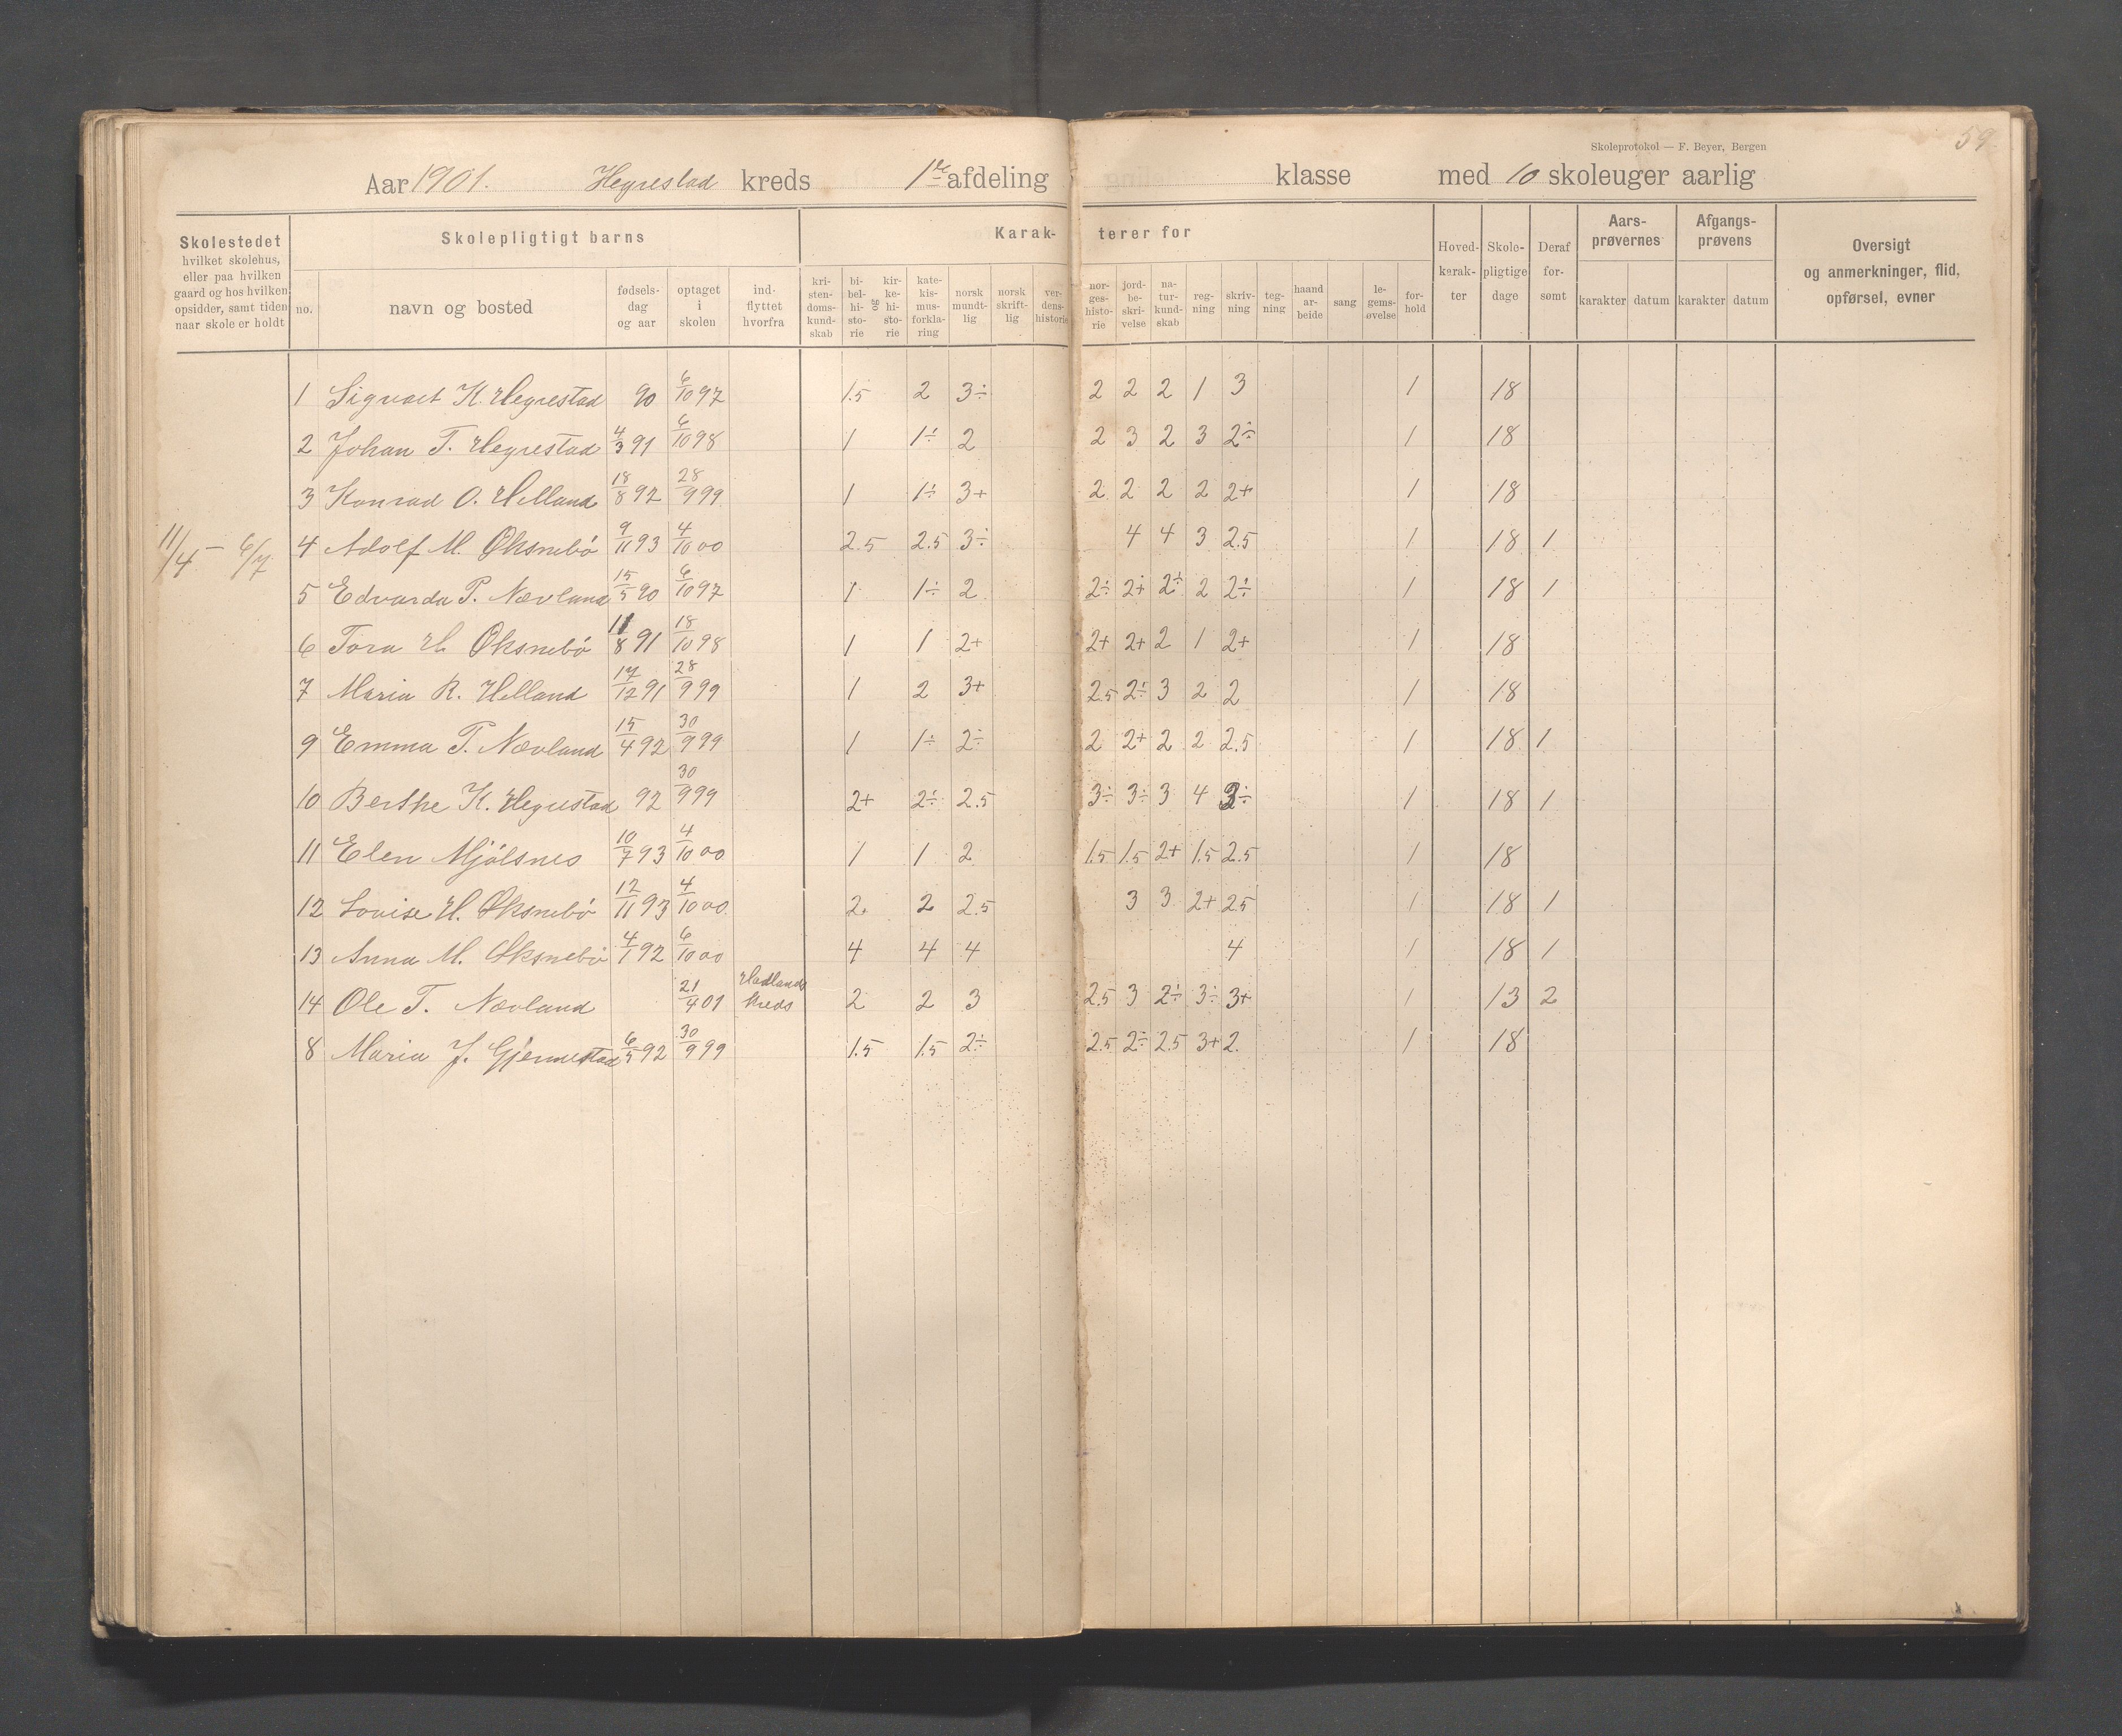 59
Skoleprotokol — F. Beyer, Bergen
Aar 1901. Hegrestad kreds 1ste afdeling klasse med 10 skoleuger aarlig
Skolestedet hvilket skolehus, eller paa hvilken gaard og hos hvilken opsidder, samt tiden naar skole er holdt
Skolepligtigt barns
Karak- terer for
no. navn og bosted fødselsdag og aar optaget i skolen indflyttet hvorfra
kristendomskundskab bibelhistorie og kirkehistorie katekismusforklaring norsk mundtlig norsk skriftlig verdenshistorie
norgeshistorie jordbeskrivelse naturkundskab regning skrivning tegning haandarbeide sang legemsøvelse forhold
Hovedkarakter Skolepligtige dage Deraf forsømt
Aarsprøvernes karakter datum Afgangsprøvens karakter datum
Oversigt og anmerkninger, flid, opførsel, evner
1 Sigvart K. Hegrestad 90 6/10 97 1.5 2 3÷ 2 2 2 1 3 1 18
2 Johan T. Hegrestad 4/3 91 6/10 98 1 1÷ 2 2 3 2 3 2÷ 1 18
3 Konrad O. Helland 18/8 92 28/9 99 1 1÷ 3+ 2 2 2 2 2+ 1 18
11/4 – 6/7 4 Adolf M. Øksnebø 9/11 93 4/10 00 2.5 2.5 3÷ 4 4 3 2.5 1 18 1
5 Edvarda P. Nævland 15/5 90 6/10 97 1 1÷ 2 2÷ 2+ 2÷ 2 2÷ 1 18 1
6 Tora H. Øksnebø 11/8 91 18/10 98 1 1 2+ 2+ 2+ 2 1 2+ 1 18
7 Maria R. Helland 17/12 91 28/9 99 1 2 3+ 2.5 2÷ 3 2 2 1 18
9 Emma T. Nævland 15/4 92 30/9 99 1 1÷ 2÷ 2 2+ 2 2 2.5 1 18 1
10 Berthe K. Hegrestad 92 30/9 99 2+ 2÷ 2.5 3÷ 3÷ 3 4 3÷ 1 18 1
11 Elen Mjølsnes 10/7 93 4/10 00 1 1 2 1.5 1.5 2+ 1.5 2.5 1 18
12 Lovise H. Øksnebø 12/11 93 4/10 00 2 2 2.5 3 3 2+ 2.5 1 18 1
13 Anna M. Øksnebø 4/1 92 6/10 00 4 4 4 4 1 18 1
14 Ole T. Nævland 21/4 01 Hadlands kreds 2 2 3 2.5 3 2÷ 3÷ 3+ 1 13 2
8 Maria J. Gjermestad 6/5 92 30/9 99 1.5 1.5 2÷ 2.5 2÷ 2.5 3+ 2. 1 18